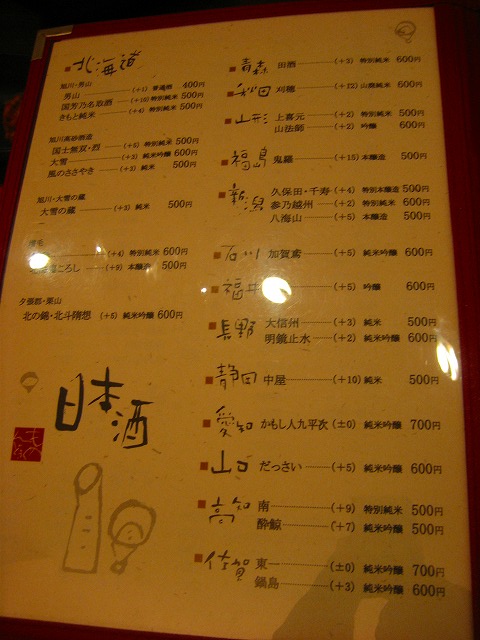 北海道
旭川・男山
男山 (+1) 普通酒 400円
国芳乃名取酒 (+10) 特別純米 500円
きもと純米 (+4) 特別純米 500円
旭川高砂酒造
国士無双・烈 (+5) 特別純米 500円
大雪 (+3) 純米吟醸 600円
風のささやき (+3) 純米 500円
旭川・大雪の蔵
大雪の蔵 (+3) 純米 500円
増毛
(+4) 特別純米 600円
ころし (+9) 本醸造 500円
夕張郡・栗山
北の錦・北斗随想 (+5) 純米吟醸 600円
日本酒
青森 田酒 (+3) 特別純米 600円
秋田 刈穂 (+12) 山廃純米 600円
山形 上喜元 (+2) 特別純米 500円
山法師 (+2) 吟醸 600円
福島 鬼羅 (+15) 本醸造 500円
新潟 久保田・千寿 (+4) 特別本醸造 500円
参乃越州 (+2) 特別純米 600円
八海山 (+5) 本醸造 500円
石川 加賀鳶 (+5) 純米吟醸 600円
福井 (+5) 吟醸 600円
長野 大信州 (+3) 純米 500円
明鏡止水 (+2) 純米吟醸 600円
静岡 中屋 (+10) 純米 500円
愛知 かもし人九平次 (±0) 純米吟醸 700円
山口 だっさい (+5) 純米吟醸 600円
高知 南 (+9) 特別純米 500円
酔鯨 (+7) 純米吟醸 500円
佐賀 東一 (±0) 純米吟醸 700円
鍋島 (+3) 純米吟醸 600円